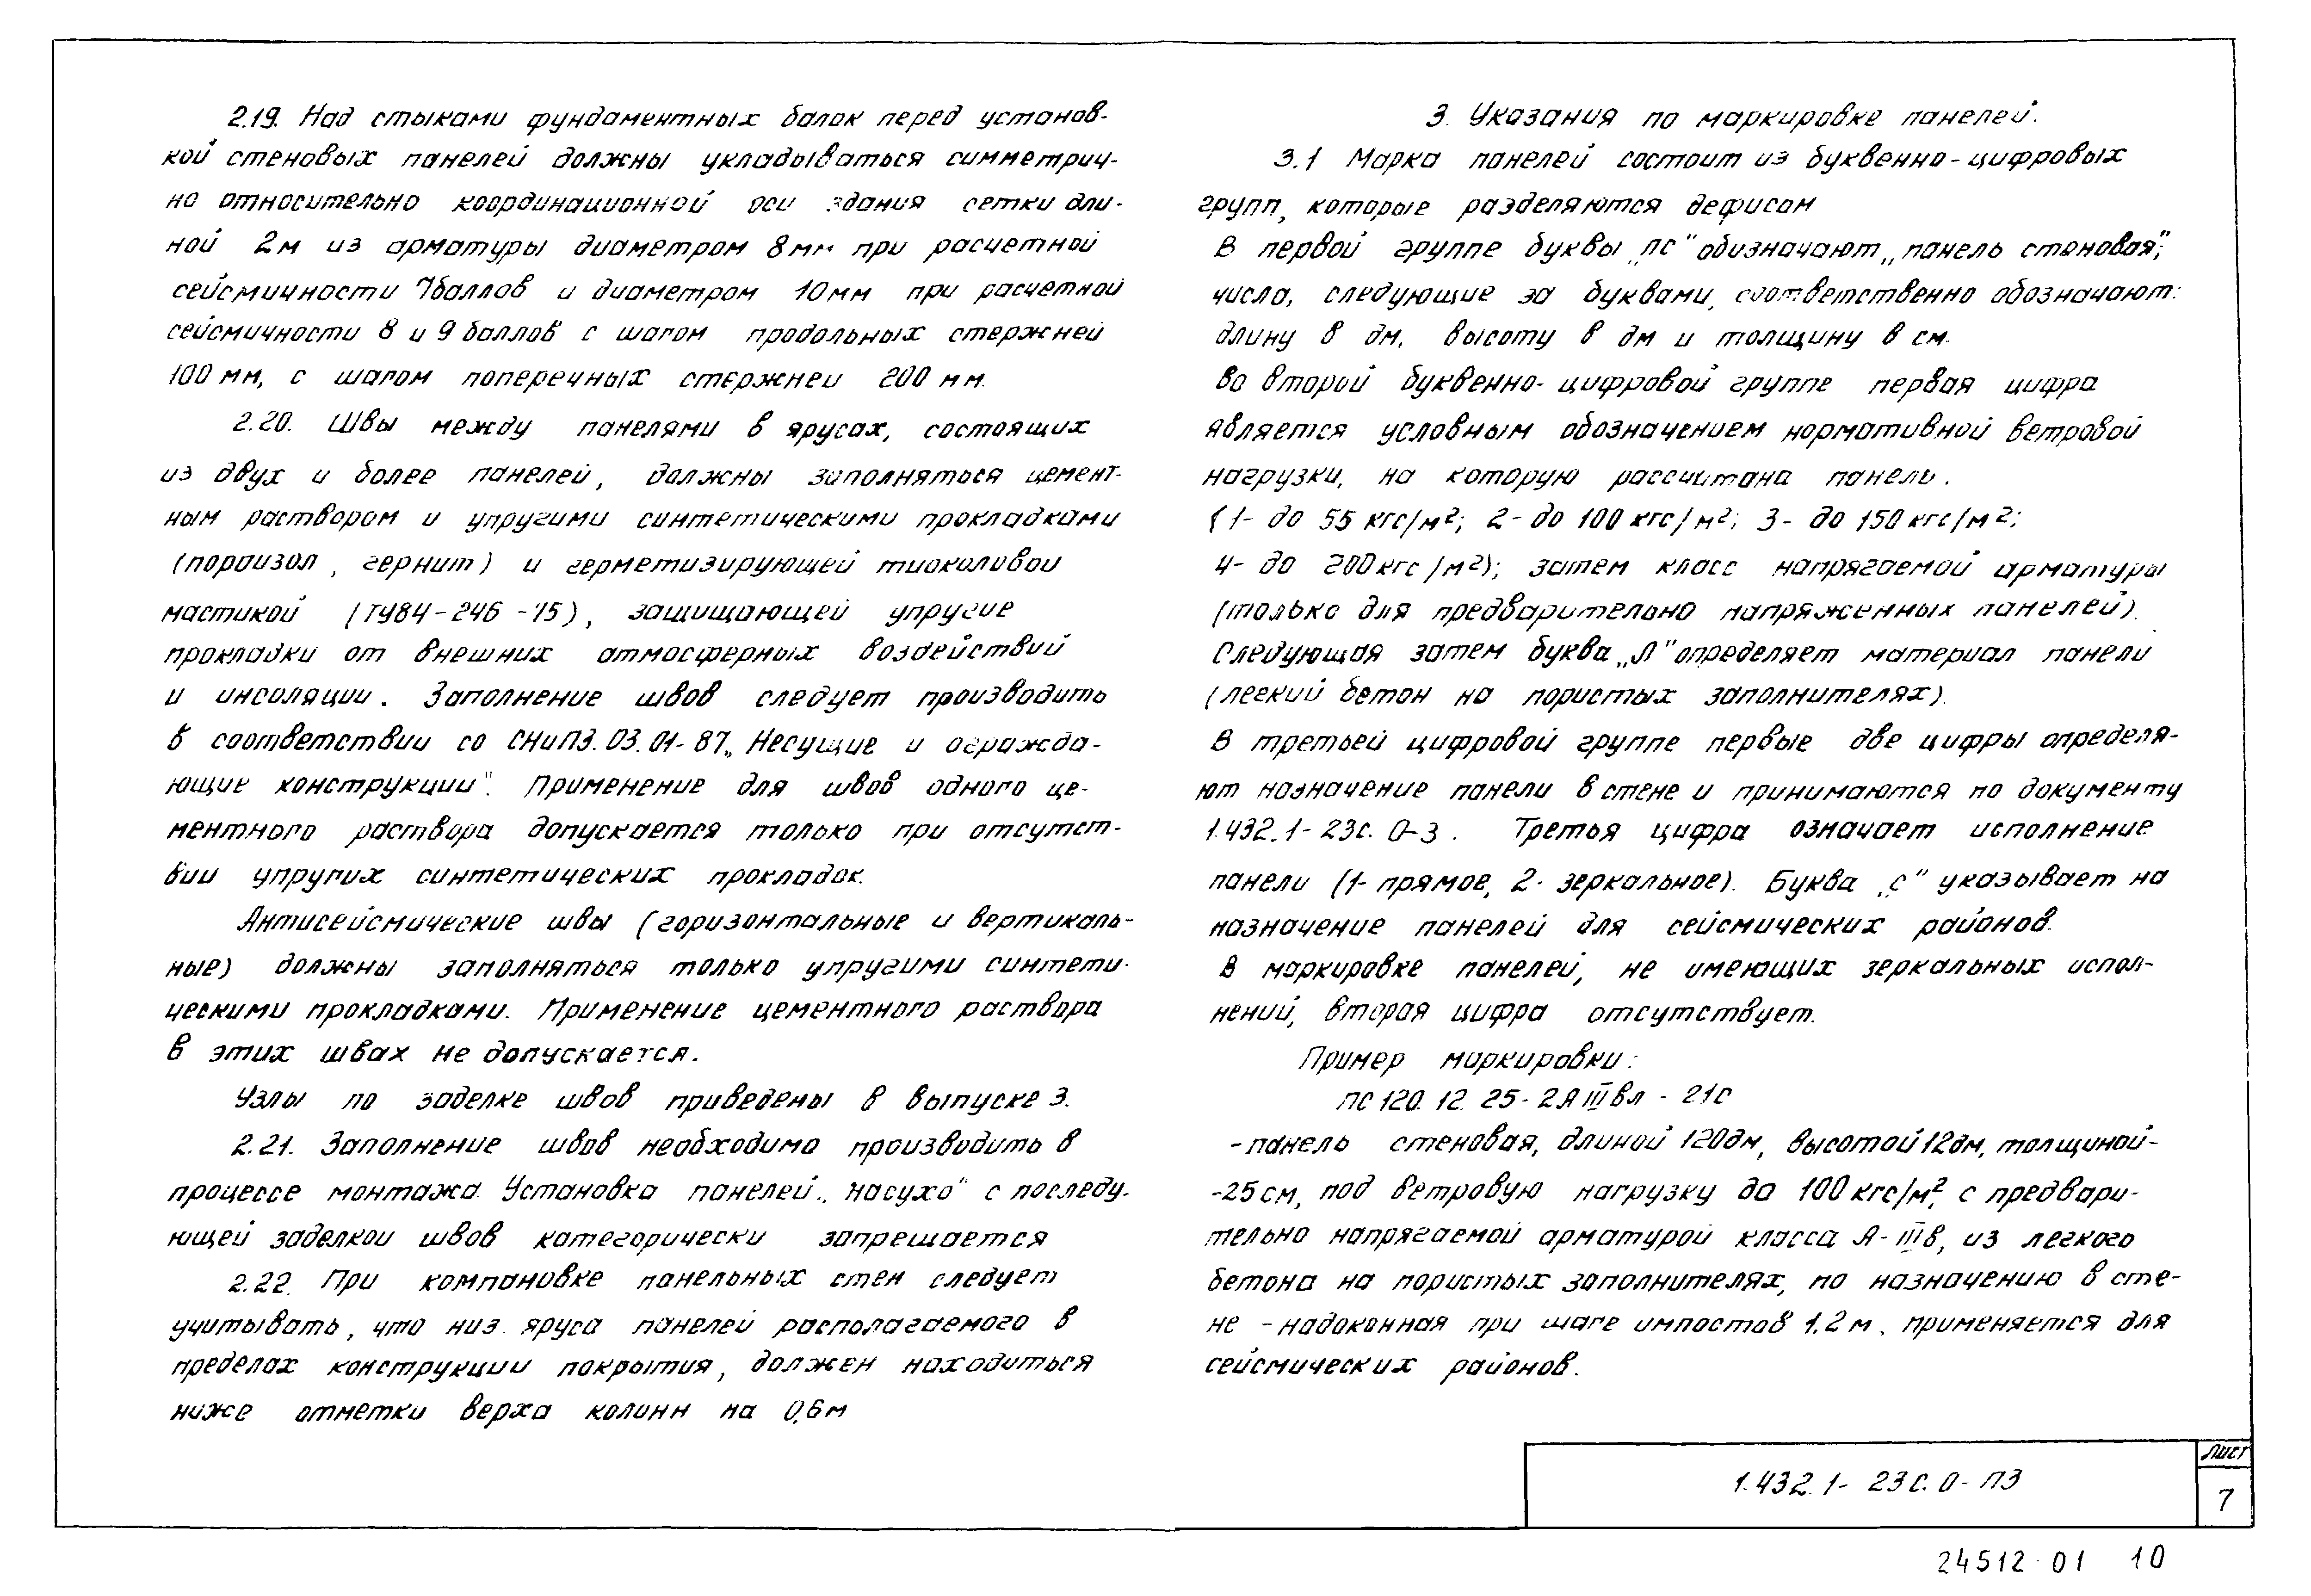 2.19. Над стыками фундаментных балок перед установ-
кой стеновых панелей должны укладываться симметрич-
но относительно координационной оси здания сетки дли-
ной 2м из арматуры диаметром 8мм при расчетной
сейсмичности 7баллов и диаметром 10мм при расчетной
сейсмичности 8 и 9 баллов с шагом продольных стержней
100 мм, с шагом поперечных стержней 200 мм.
2.20. Швы между панелями в ярусах, состоящих
из двух и более панелей, должны заполняться цемент-
ным раствором и упругими синтетическими прокладками
(пороизол, гернит) и герметизирующей тиоколовой
мастикой (ТУ84-246-75), защищающей упругие
прокладки от внешних атмосферных воздействий
и инсоляции. Заполнение швов следует производить
в соответствии со СНиП3.03.01-87 „Несущие и огражда-
ющие конструкции". Применение для швов одного це-
ментного раствора допускается только при отсутст-
вии упругих синтетических прокладок.
Антисейсмические швы (горизонтальные и вертикаль-
ные) должны заполняться только упругими синтети-
ческими прокладками. Применение цементного раствора
в этих швах не допускается.
Узлы по заделке швов приведены в выпуске 3.
2.21. Заполнение швов необходимо производить в
процессе монтажа. Установка панелей „насухо" с последу-
ющей заделкой швов категорически запрещается
2.22. При компановке панельных стен следует
учитывать, что низ яруса панелей располагаемого в
пределах конструкции покрытия, должен находиться
ниже отметки верха колонн на 0,6м
3. Указания по маркировке панелей.
3.1 Марка панелей состоит из буквенно-цифровых
групп, которые разделяются дефисом
В первой группе буквы „ПС" обозначают „панель стеновая",
числа, следующие за буквами, соответственно обозначают:
длину в дм, высоту в дм и толщину в см.
Во второй буквенно-цифровой группе первая цифра
является условным обозначением нормативной ветровой
нагрузки, на которую рассчитана панель.
(1- до 55 кгс/м²; 2- до 100 кгс/м²; 3- до 150 кгс/м²;
4- до 200кгс/м²); затем класс напрягаемой арматуры
(только для предварительно напряженных панелей).
Следующая затем буква „Л" определяет материал панели
(легкий бетон на пористых заполнителях).
В третьей цифровой группе первые две цифры определя-
ют назначение панели в стене и принимаются по документу
1.432.1-23с. 0-3. Третья цифра означает исполнение
панели (1- прямое, 2- зеркальное). Буква „с" указывает на
назначение панелей для сейсмических районов.
В маркировке панелей, не имеющих зеркальных испол-
нений, вторая цифра отсутствует.
Пример маркировки:
ПС 120.12.25-2АIIIвл - 21С
-панель стеновая, длиной 120дм, высотой 12дм, толщиной-
-25см, под ветровую нагрузку до 100кгс/м², с предвари-
тельно напрягаемой арматурой класса А-IIIв, из легкого
бетона на пористых заполнителях, по назначению в сте-
не - надоконная при шаге импостов 1,2м, применяется для
сейсмических районов.
1.432.1-23С.0-ПЗ
Лист
7
24512-01 10